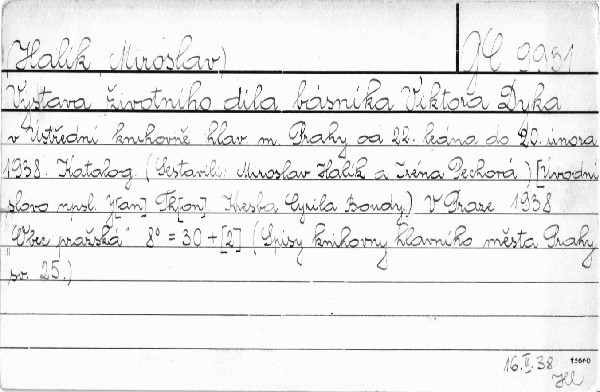 (Halík Miroslav) JC 9931
Výstava životního díla básníka Viktora Dyka
v Ústřední knihovně hlav. m. Prahy od 22. ledna do 20. února
1938. Katalog. (Sestavili: Miroslav Halík a Irena Pechová) [Úvodní
slovo npsl. J[an] Th[on]. Kresba Cyrila Boudy.) V Praze 1938
"Obec pražská" 8° = 30 + [2] (Spisy knihovny hlavního města Prahy
sv. 25.)
16.II.38
Hl